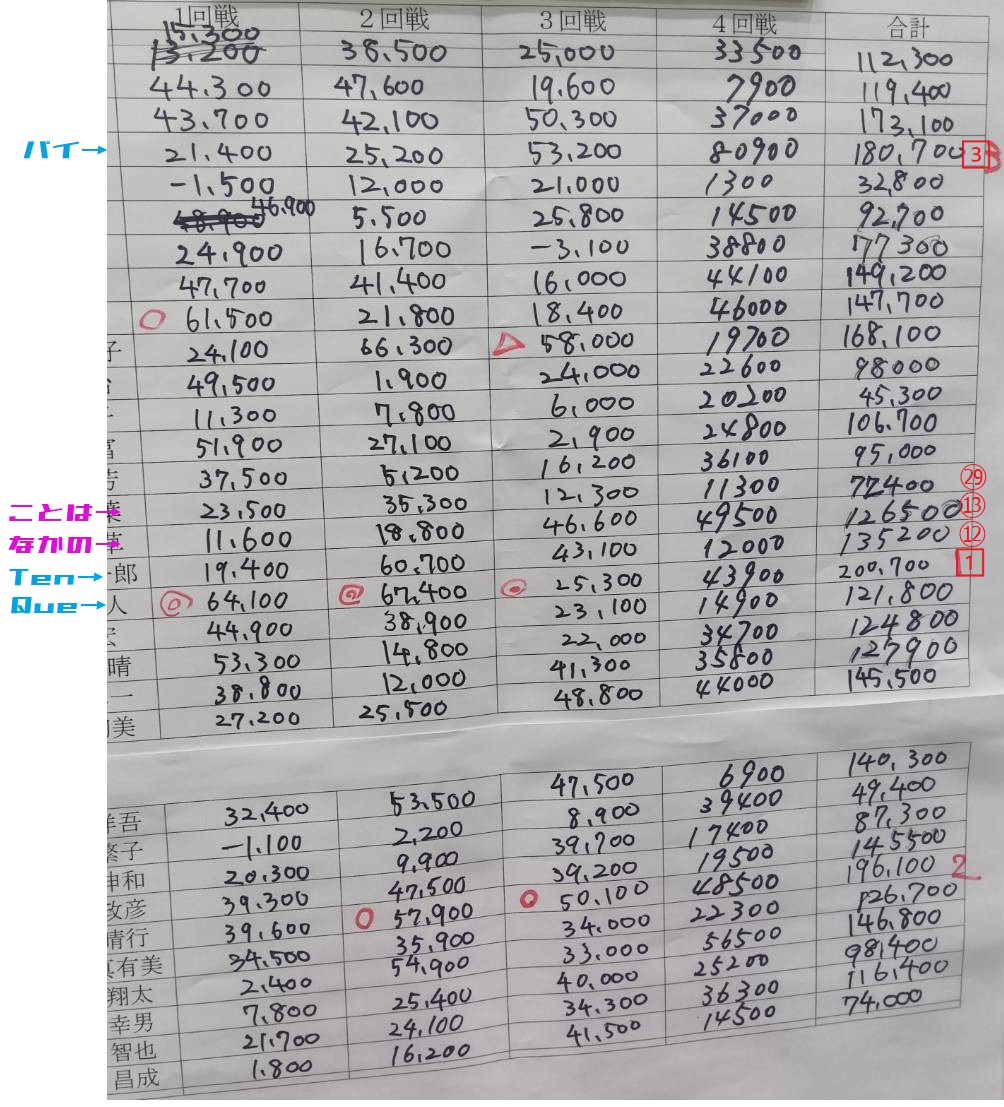 1回戦 2回戦 3回戦 4回戦 合計
15,300 38,500 25,000 33500 112,300
44,300 47,600 19,600 7900 119,400
43,700 42,100 50,300 37000 173,100
パイ→ 21,400 25,200 53,200 80900 180,700 3
-1,500 12,000 21,000 1300 32,800
46,900 5,500 25,800 14500 92,700
24,900 16,700 -3,100 38800 77300
47,700 41,400 16,000 44100 149,200
61,500 21,800 18,400 46000 147,700
子 24,100 66,300 58,000 19700 168,100
49,500 1,900 24,000 22600 98000
11,300 7,800 6,000 20200 45,300
51,900 27,100 2,900 24800 106,700
37,500 5,200 16,200 36100 95,000
ことは→ 葉 23,500 35,300 12,300 11300 72400 ㉙
なかの→ 草 11,600 18,800 46,600 49500 126500 ⑬
Ten→ 郎 19,400 60,700 43,100 12000 135200 ⑫
Que→ 人 64,100 67,400 25,300 43900 200,700 1
44,900 38,900 23,100 14900 121,800
晴 53,300 14,800 22,000 34700 124800
一 38,800 12,000 41,300 35800 127900
美 27,200 25,500 48,800 44000 145,500
吾 32,400 53,500 47,500 6900 140,300
子 -1,100 2,200 8,900 39400 49,400
和 20,300 9,900 39,700 17400 87,300
彦 39,300 47,500 39,200 19500 145500
晴行 39,600 57,900 50,100 48500 196,100 2
真有美 34,500 35,900 34,000 22300 126,700
翔太 2,400 54,900 33,000 56500 146,800
幸男 7,800 25,400 40,000 25200 98,400
智也 21,700 24,100 34,300 36300 116,400
昌成 1,800 16,200 41,500 14500 74,000